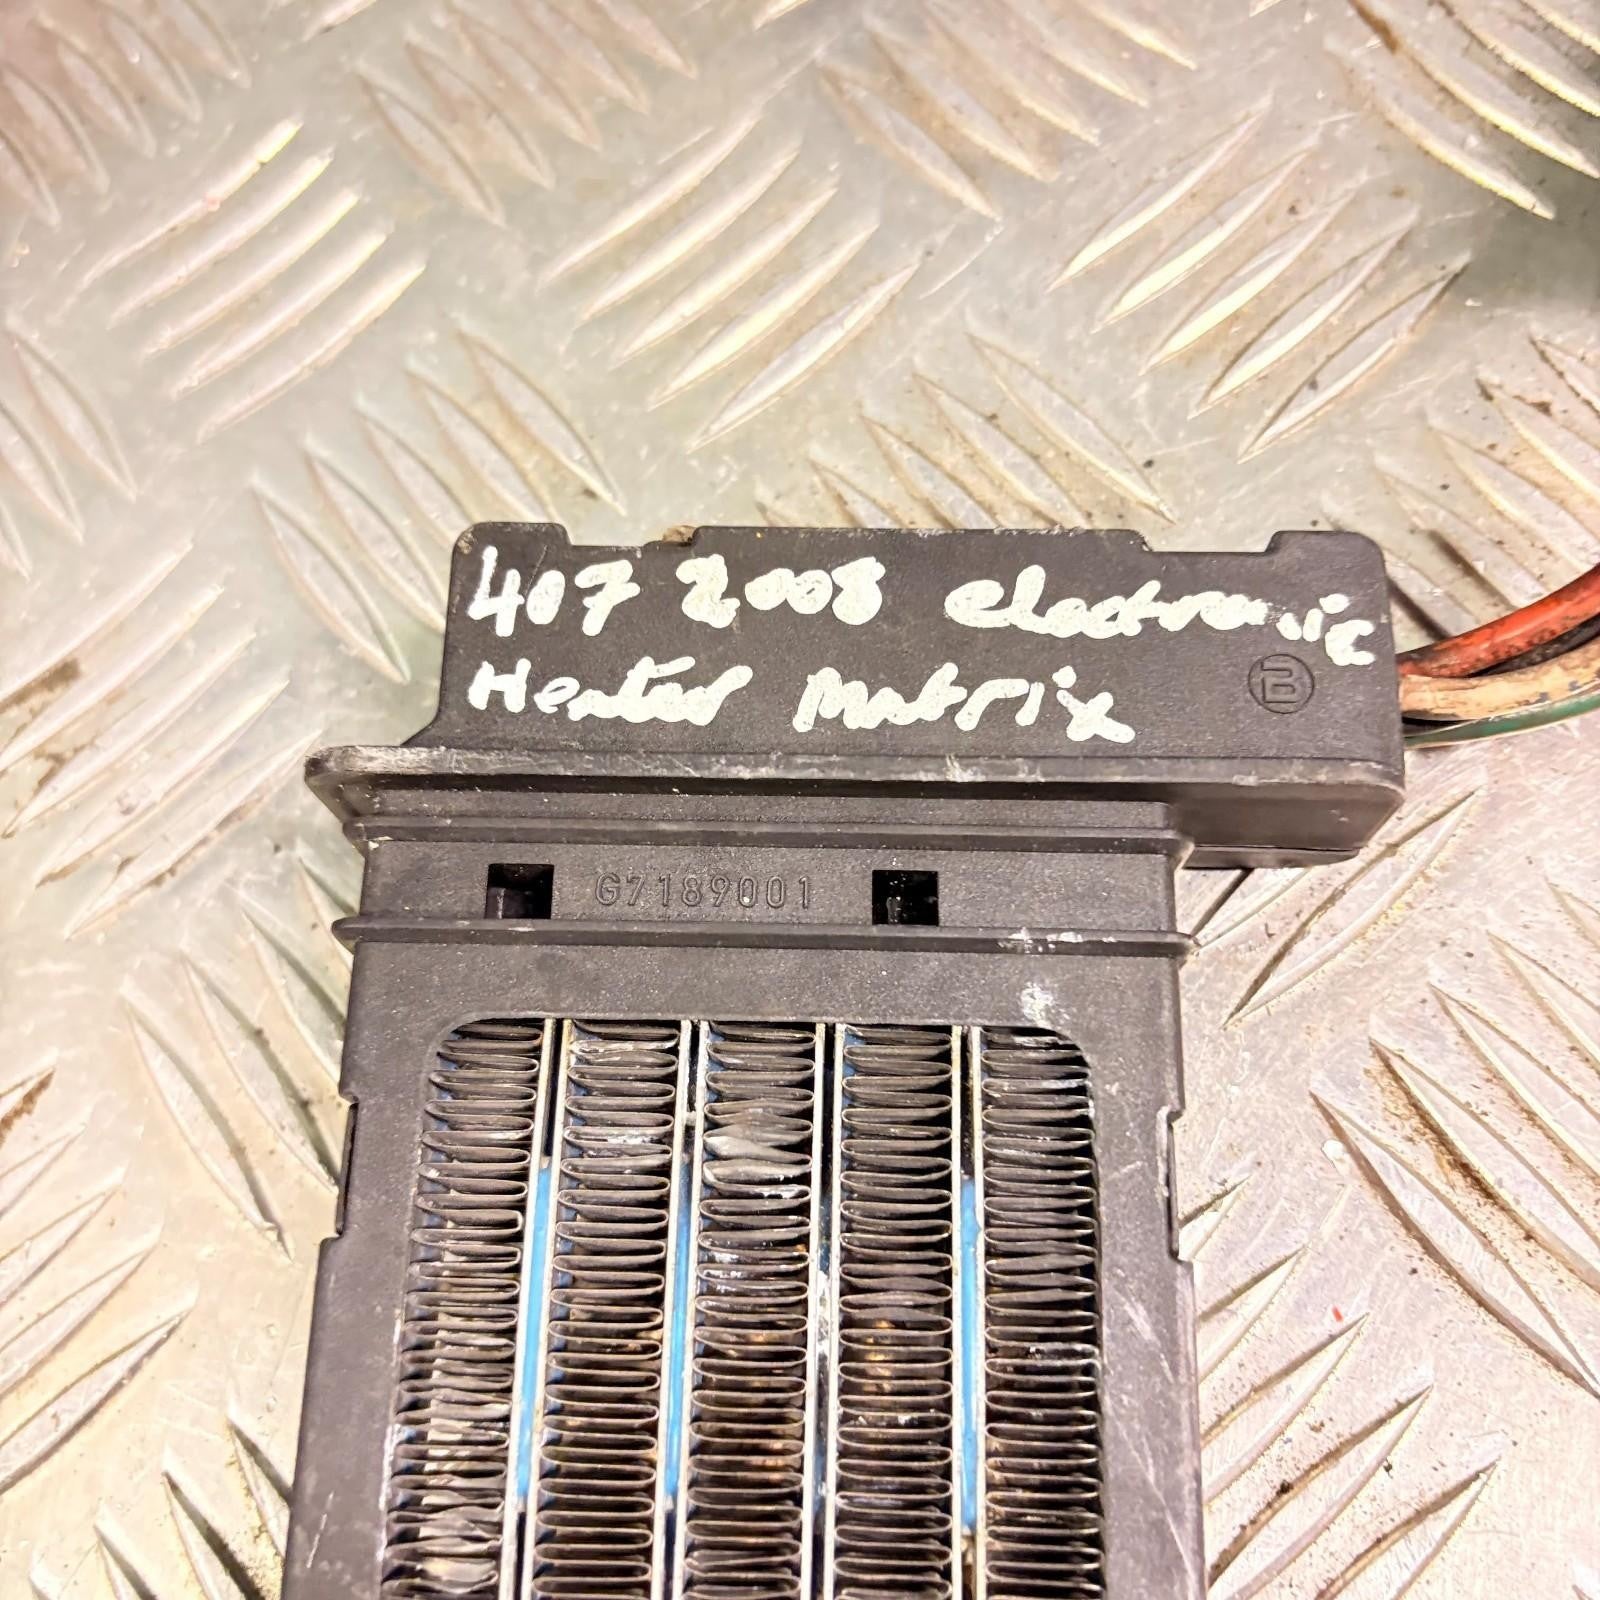 407 2008 electronic
Heater Matrix
G7189001